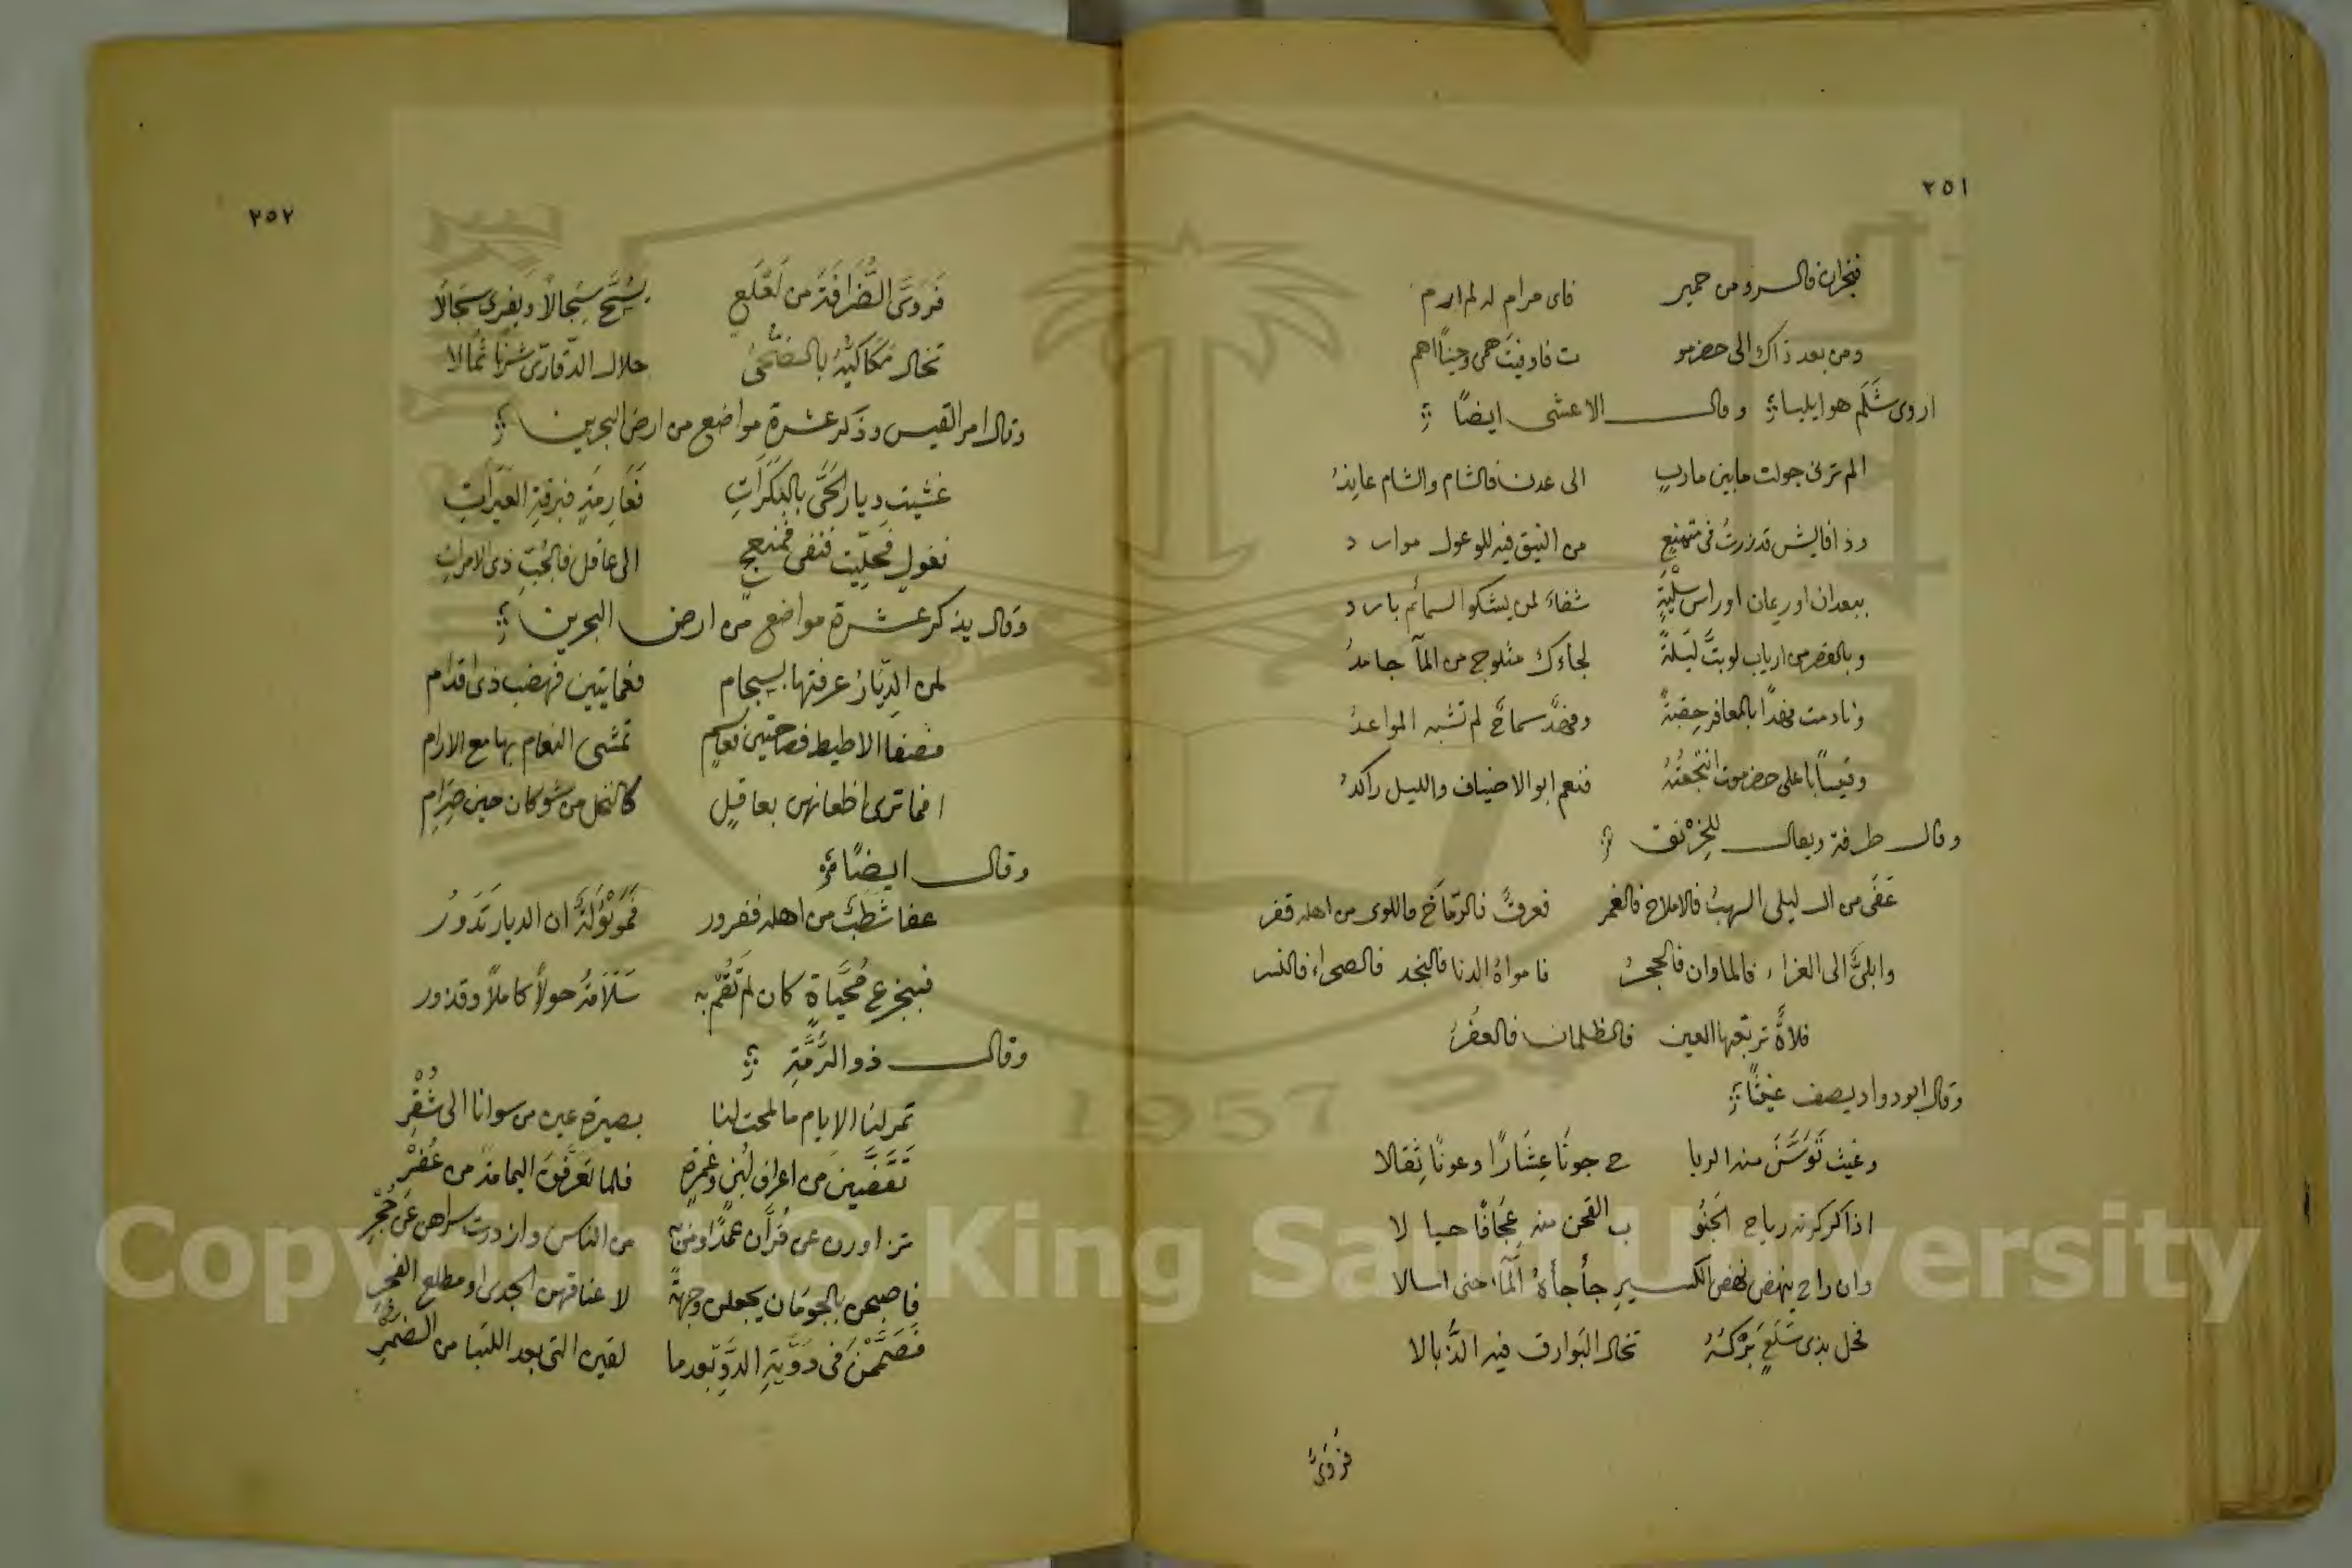 ٢٥١
فنجران فالسرو من حمير فاى مرام له لم ارم
ومن بعد ذاك الى حضرمو ت فاوفيت همى وحينًا اهم
اروى شَلَم هو ايليا وقال الاعشى ايضًا
الم ترنى جولت مابين مارب الى عدن فالشام والشام عاندُ
وذا فايش قد زرتُ فى متمنعٍ من النيق فيه للوعول موارد
ببعدان او ريمان او راس سلْيةٍ شفاءَ لمن يشكو السمائم بارد
وبالقصر من ارياب لو بتَّ ليلةً لجاءك مثلوج من المآ جامدُ
ونادمت فهدًا بالمعافر حِقبةً وفهدَّ سماحٌ لم تشبه المواعدُ
وقيسًا باعلى حضرموت انتجعتُهُ فنعم ابو الاضياف والليل راكدُ
وقال طرفة ويقال للخِرْنق
عَفَى من ال ليلى السهبُ فالاملاح فالغمر فعرقٌ فالرّمَاحُ فاللوى من اهله قفر
وابلىٌّ الى الغراء فالماوان فالحجرُ فامواهُ الدنا فالنجد فالصحراء فالنسر
فلاةٌ ترتعيها العين فالظلمان فالعفْرُ
وقال ابو دواد يصف غيثًا
وغيث تَوَسَّنَ منه الريا ح جونًا عِشَارًا وعونًا ثِقالا
اذا كركرته رياح الجَنُو ب القحن منه عِجَافًا حيا لا
وان راح ينهض نهض الكسيرِ جأجأهُ المآء حتى اسالا
فحل بذى سَلَعٍ بَرْكَهُ تخال البَوارق فيه الذُّبالا
فَرَوَّىُ
٢٥٢
فَرَوَّى الضَرافَةَ من لَعْلَعٍ يسُحَّ سِجَالًا ويفرى سجَالًا
تخال مَكاكيَّهُ بالضُّحىُ خلال الدّقارّى شَربًا ثُمالا
وقال امر القيس وذكر عشرة مواضع من ارض البحرين
غشيت ديار الحَىِّ بالبَكَرَاتِ فَعَارِمَةٍ فبرقةِ العيَراتِ
فغولٍ فحلِّيت فنفى فمنعِجٍ الى عاقل فالجُبِّ ذى الامراتِ
وقال يذكر عشرة مواضع من ارض البحرين
لمن الدِيَارُ عرفتها بسحام فعمايتين فهضب ذى اقدام
فصفا الاطيط فصاحتين فعاسمٍ تمشى النعام بها مع الارام
افما ترى اظعانهن بعاقلٍ كالنخل من شوكان حين صِرَامِ
وقال ايضًا
عفا شَطَبٌ من اهله فغرور فَمَوْبُولَةٌ ان الديار تَدَورُ
فبجزع مُحَيَّاةٍ كان لم تُقمْ به سَلَامَةُ حولًا كاملًا وقذور
وقال ذو الرُّمَّةِ
تمر لنا الايام ما لمحت لنا بصيرة عين من سوانا الى شُقْرِ
تَقَضَّيْنَ من اعراف لُبْنٍ وغمرةٍ فلما تعرفن اليمامة من عُفْرْ
تزاورن عن قُرَّان عمدًا ومن به من الناس وازدرت سراهن عن حُجْرِ
فاصبحن بالحومان يجعلن وجهةً لاعناقهن الجدى او مطلع الفجر
فَصَمَّمْنَ فى دوِّيةِ الدَّوِّ بعدما لقين التى بعد اللتيا من الضمرِ